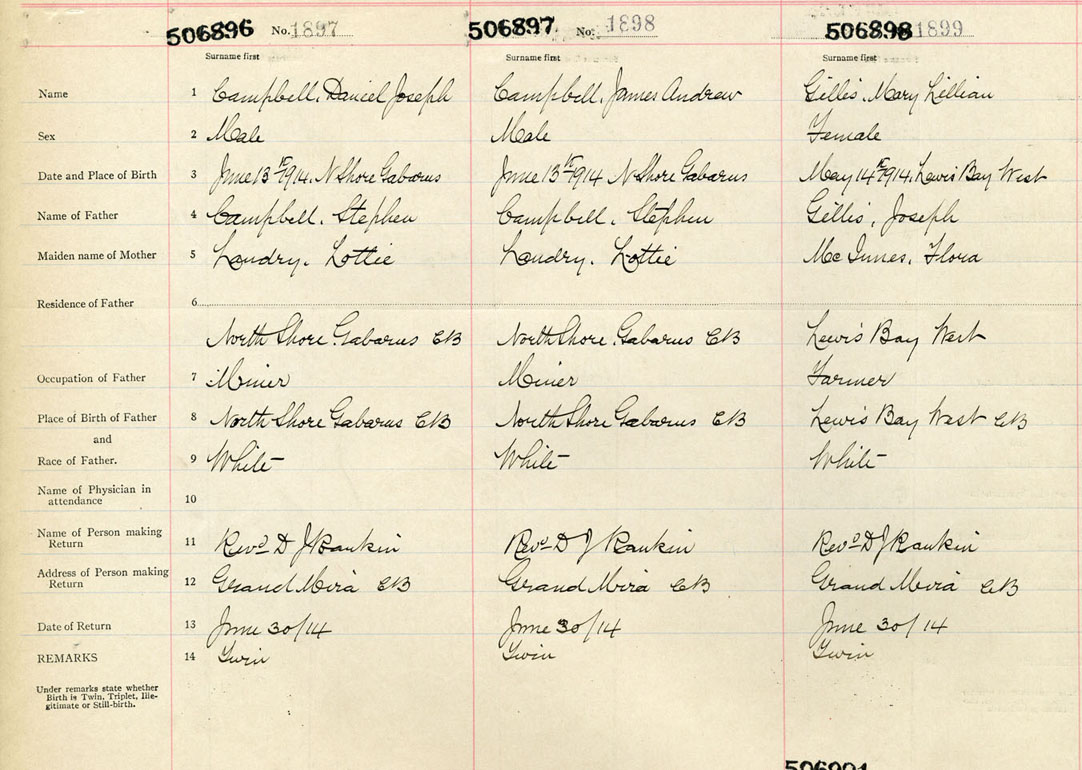 506896 No. 1897 506897 No. 1898 506898 1899
Surname first Surname first Surname first
Name 1 Campbell, Daniel Joseph Campbell, James Andrew Gillis, Mary Lillian
Sex 2 Male Male Female
Date and Place of Birth 3 June 13th 1914. N Shore Gabarus June 13th 1914 N Shore Gabarus May 14th 1914. Lewis Bay West
Name of Father 4 Campbell. Stephen Campbell. Stephen Gillis, Joseph
Maiden name of Mother 5 Landry. Lottie Landry. Lottie McInnes, Flora
Residence of Father 6
North Shore Gabarus CB North Shore Gabarus CB Lewis Bay West
Occupation of Father 7 Miner Miner Farmer
Place of Birth of Father 8 North Shore Gabarus CB North Shore Gabarus CB Lewis Bay West CB
and
Race of Father. 9 White White White
Name of Physician in
attendance 10
Name of Person making
Return 11 Revd D J Rankin Revd D J Rankin Revd D J Rankin
Address of Person making
Return 12 Grand Mira CB Grand Mira CB Grand Mira CB
Date of Return 13 June 30/14 June 30/14 June 30/14
REMARKS 14 Twin Twin Twin
Under remarks state whether
Birth is Twin, Triplet, Ille-
gitimate or Still-birth.